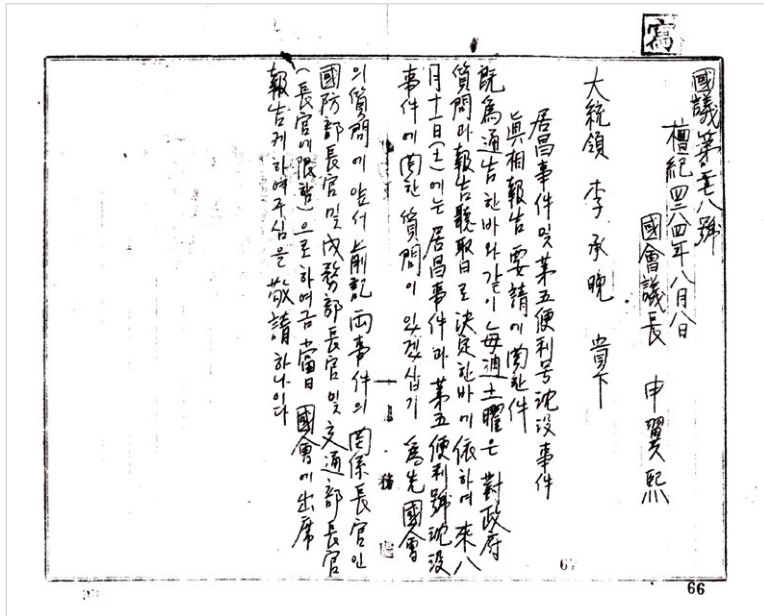 寫
國議第 八號
檀紀四二八四年八月 日
國會議長 申翼熙
大統領 李承晩 貴下
居昌事件및第五便利号沈沒事件
眞相報告要請에関한件
旣爲通告한바와같이每週土曜은對政府
質問과報告聽取日로決定한바에依하여來八
月十一日(土)에는居昌事件과第五便利號沈沒
事件에関한質問이있겠삽기爲先國會
의質問에앞서前記両事件의関係長官인
國防部長官및 務部長官및交通部長官
(長官에限함)으로하여금當日國會에出席
報告케하여주심을敬請하나이다
67
66